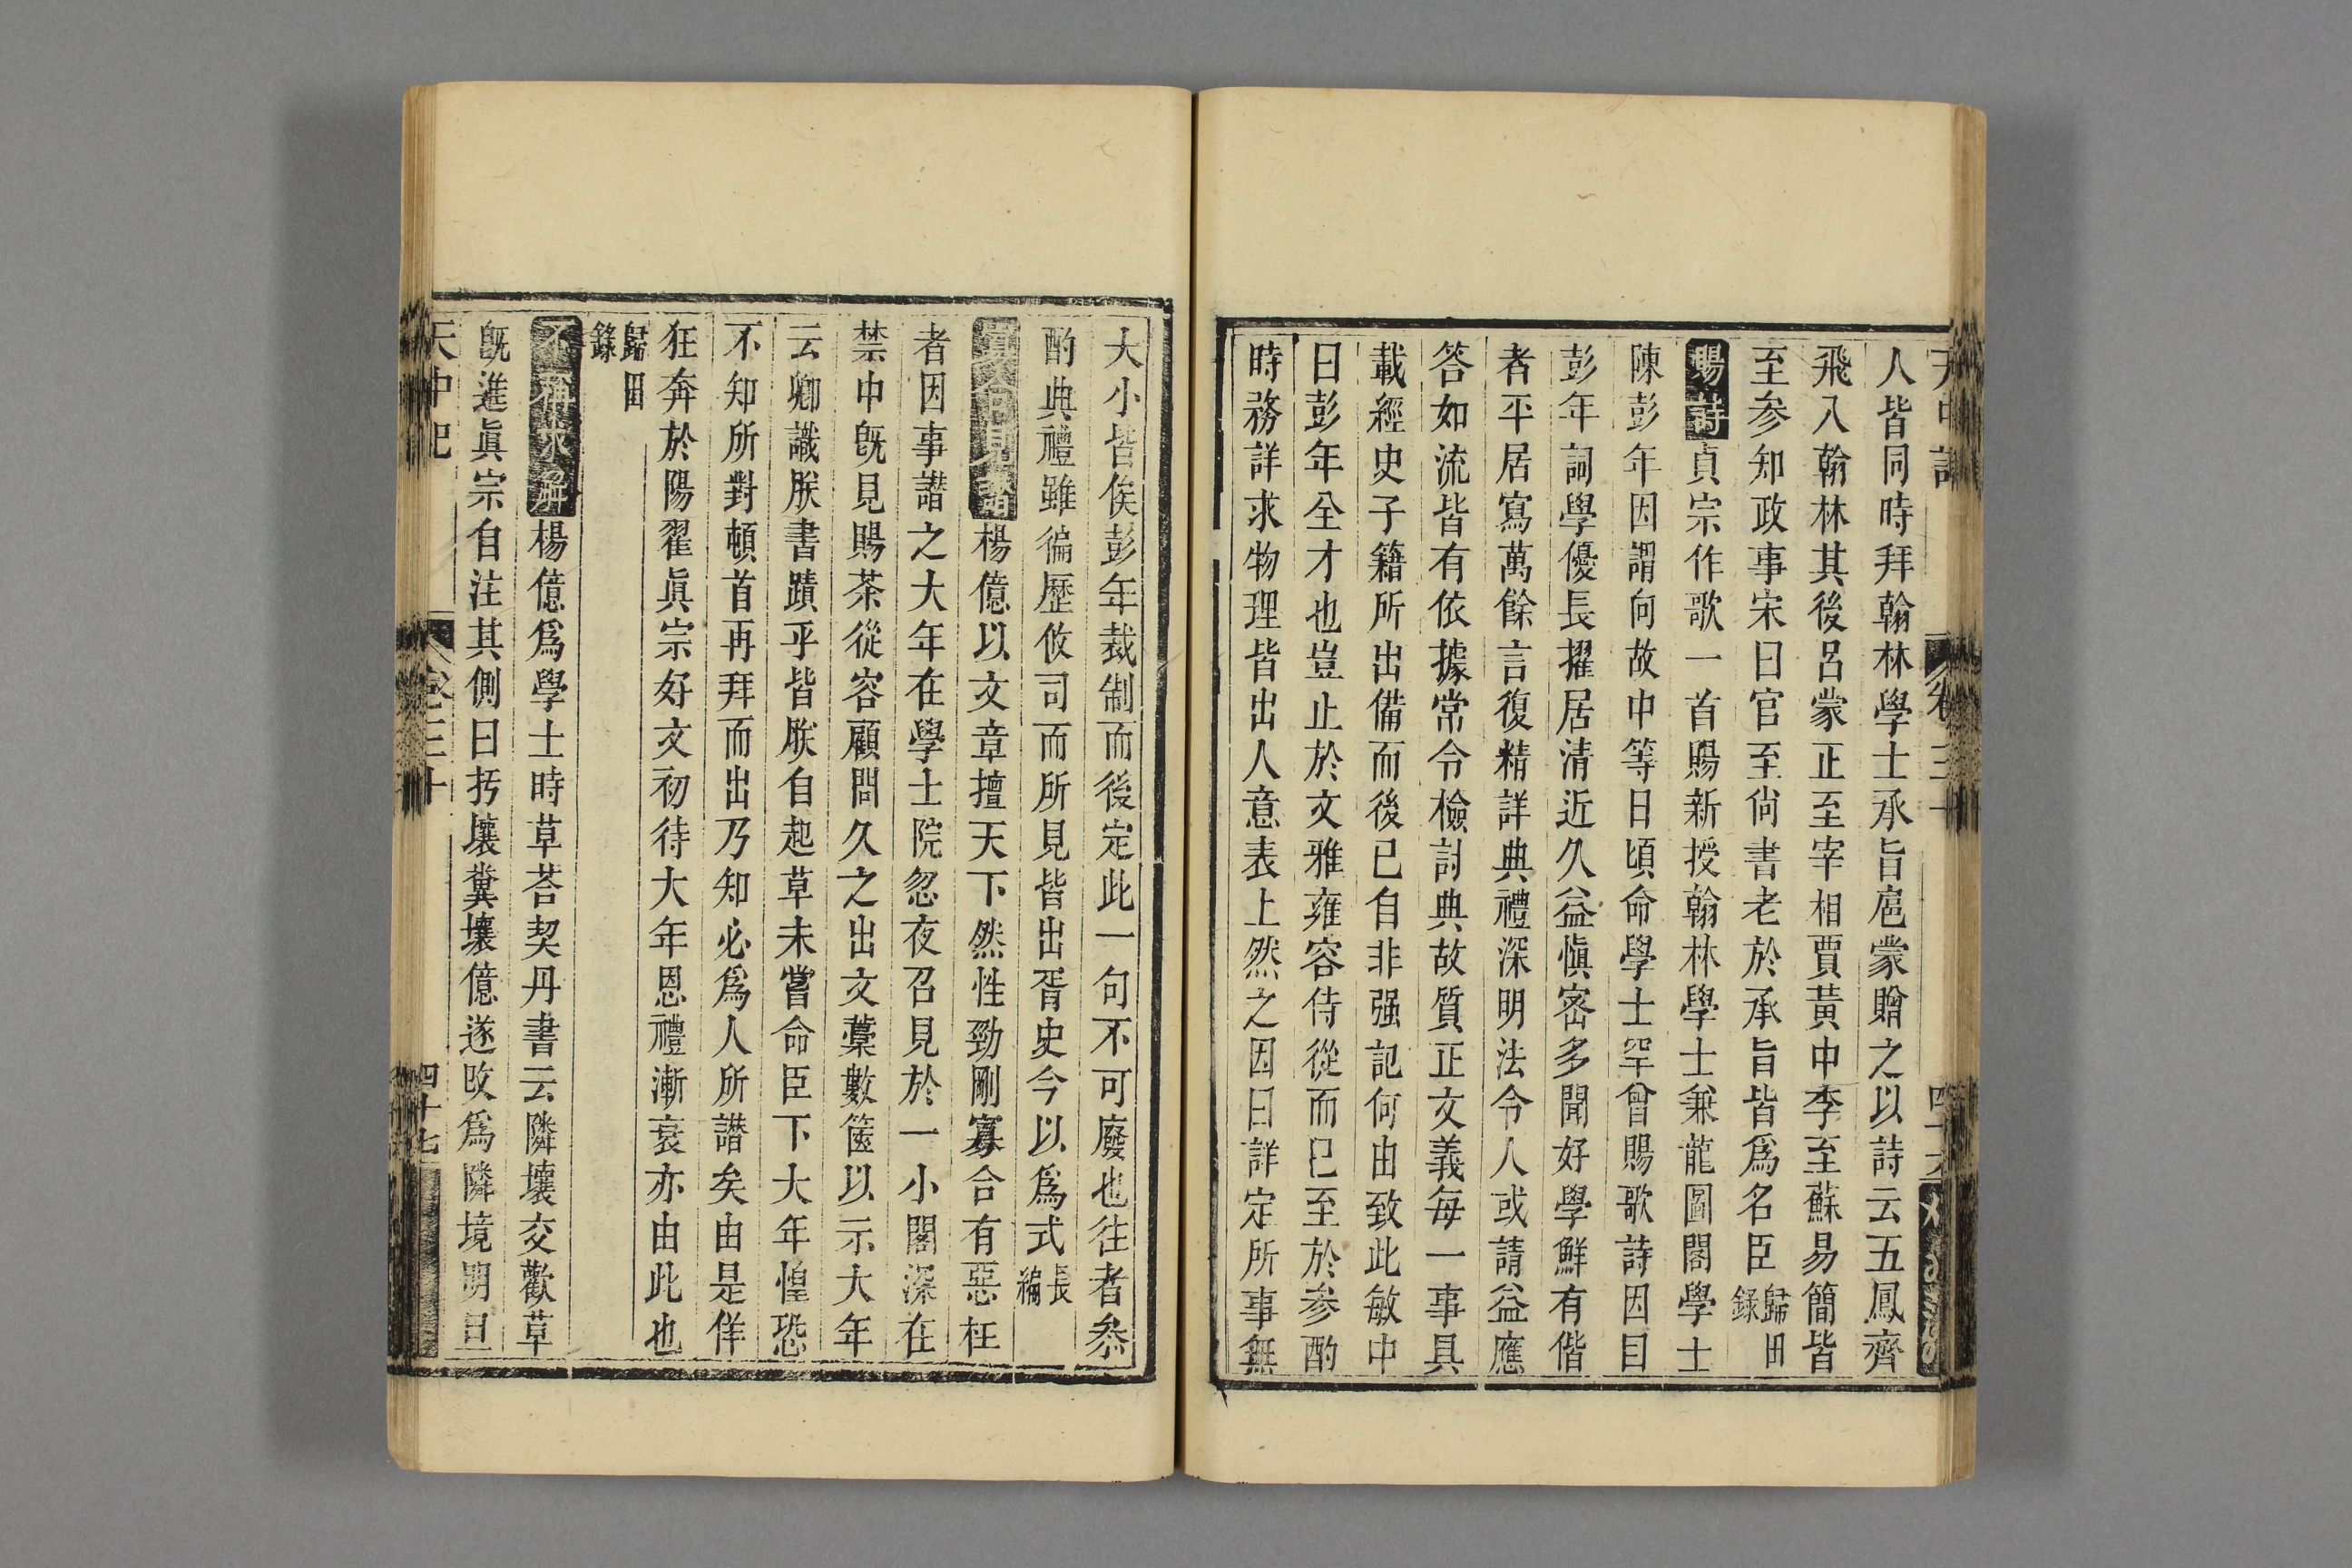 天中記
卷三十
四十六
人皆同時拜翰林學士承旨扈蒙贈之以詩云五鳳齊
飛入翰林其後呂蒙正至宰相賈黃中李至蘇易簡皆
至参知政事宋白官至尙書老於承旨皆爲名臣歸田錄
賜詩貞宗作歌一首賜新授翰林學士兼龍圖閣學士
陳彭年因謂向故中等日頃命學士罕曾賜歌詩因目
彭年詞學優長擢居清近久益愼密多聞好學鮮有偕
者平居寫萬餘言復精詳典禮深明法令人或請益應
答如流皆有依據常令檢討典故質正文義每一事具
載經史子籍所出備而後已自非强記何由致此敏中
曰彭年全才也豈止於文雅雍容侍從而已至於参酌
時務詳求物理皆出人意表上然之因曰詳定所事無
大小皆俟彭年裁制而後定此一句不可廢也往者叅
酌典禮雖徧歷攸司而所見皆出胥史今以爲式長編
寡合見譖楊億以文章擅天下然性勁剛寡合有惡枉
者因事譖之大年在學士院忽夜召見於一小閣深在
禁中旣見賜茶從容顧問久之出文藁數篋以示大年
云卿識朕書蹟乎皆朕自起草未嘗命臣下大年惶恐
不知所對頓首再拜而出乃知必爲人所譖矣由是佯
狂奔於陽翟眞宗好文初待大年恩禮漸衰亦由此也
歸田錄
不再求解楊億爲學士時草荅契丹書云隣壤交歡草
旣進眞宗自注其側曰朽壤糞壤億遂改爲隣境明旦
天中記
卷三十
四十七